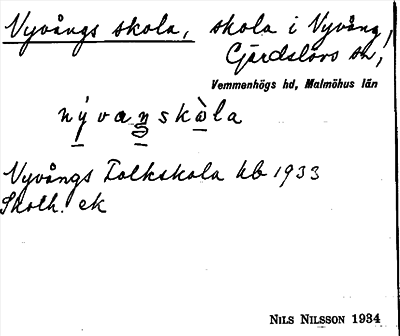 Nyvångs skola, skola i Nyvång,
Gärdslövs sn,
Vemmenhögs hd, Malmöhus län
nývaŋskὼla
Nyvångs Folkskola hb 1933
Skolh. ek
NILS NILSSON 1934